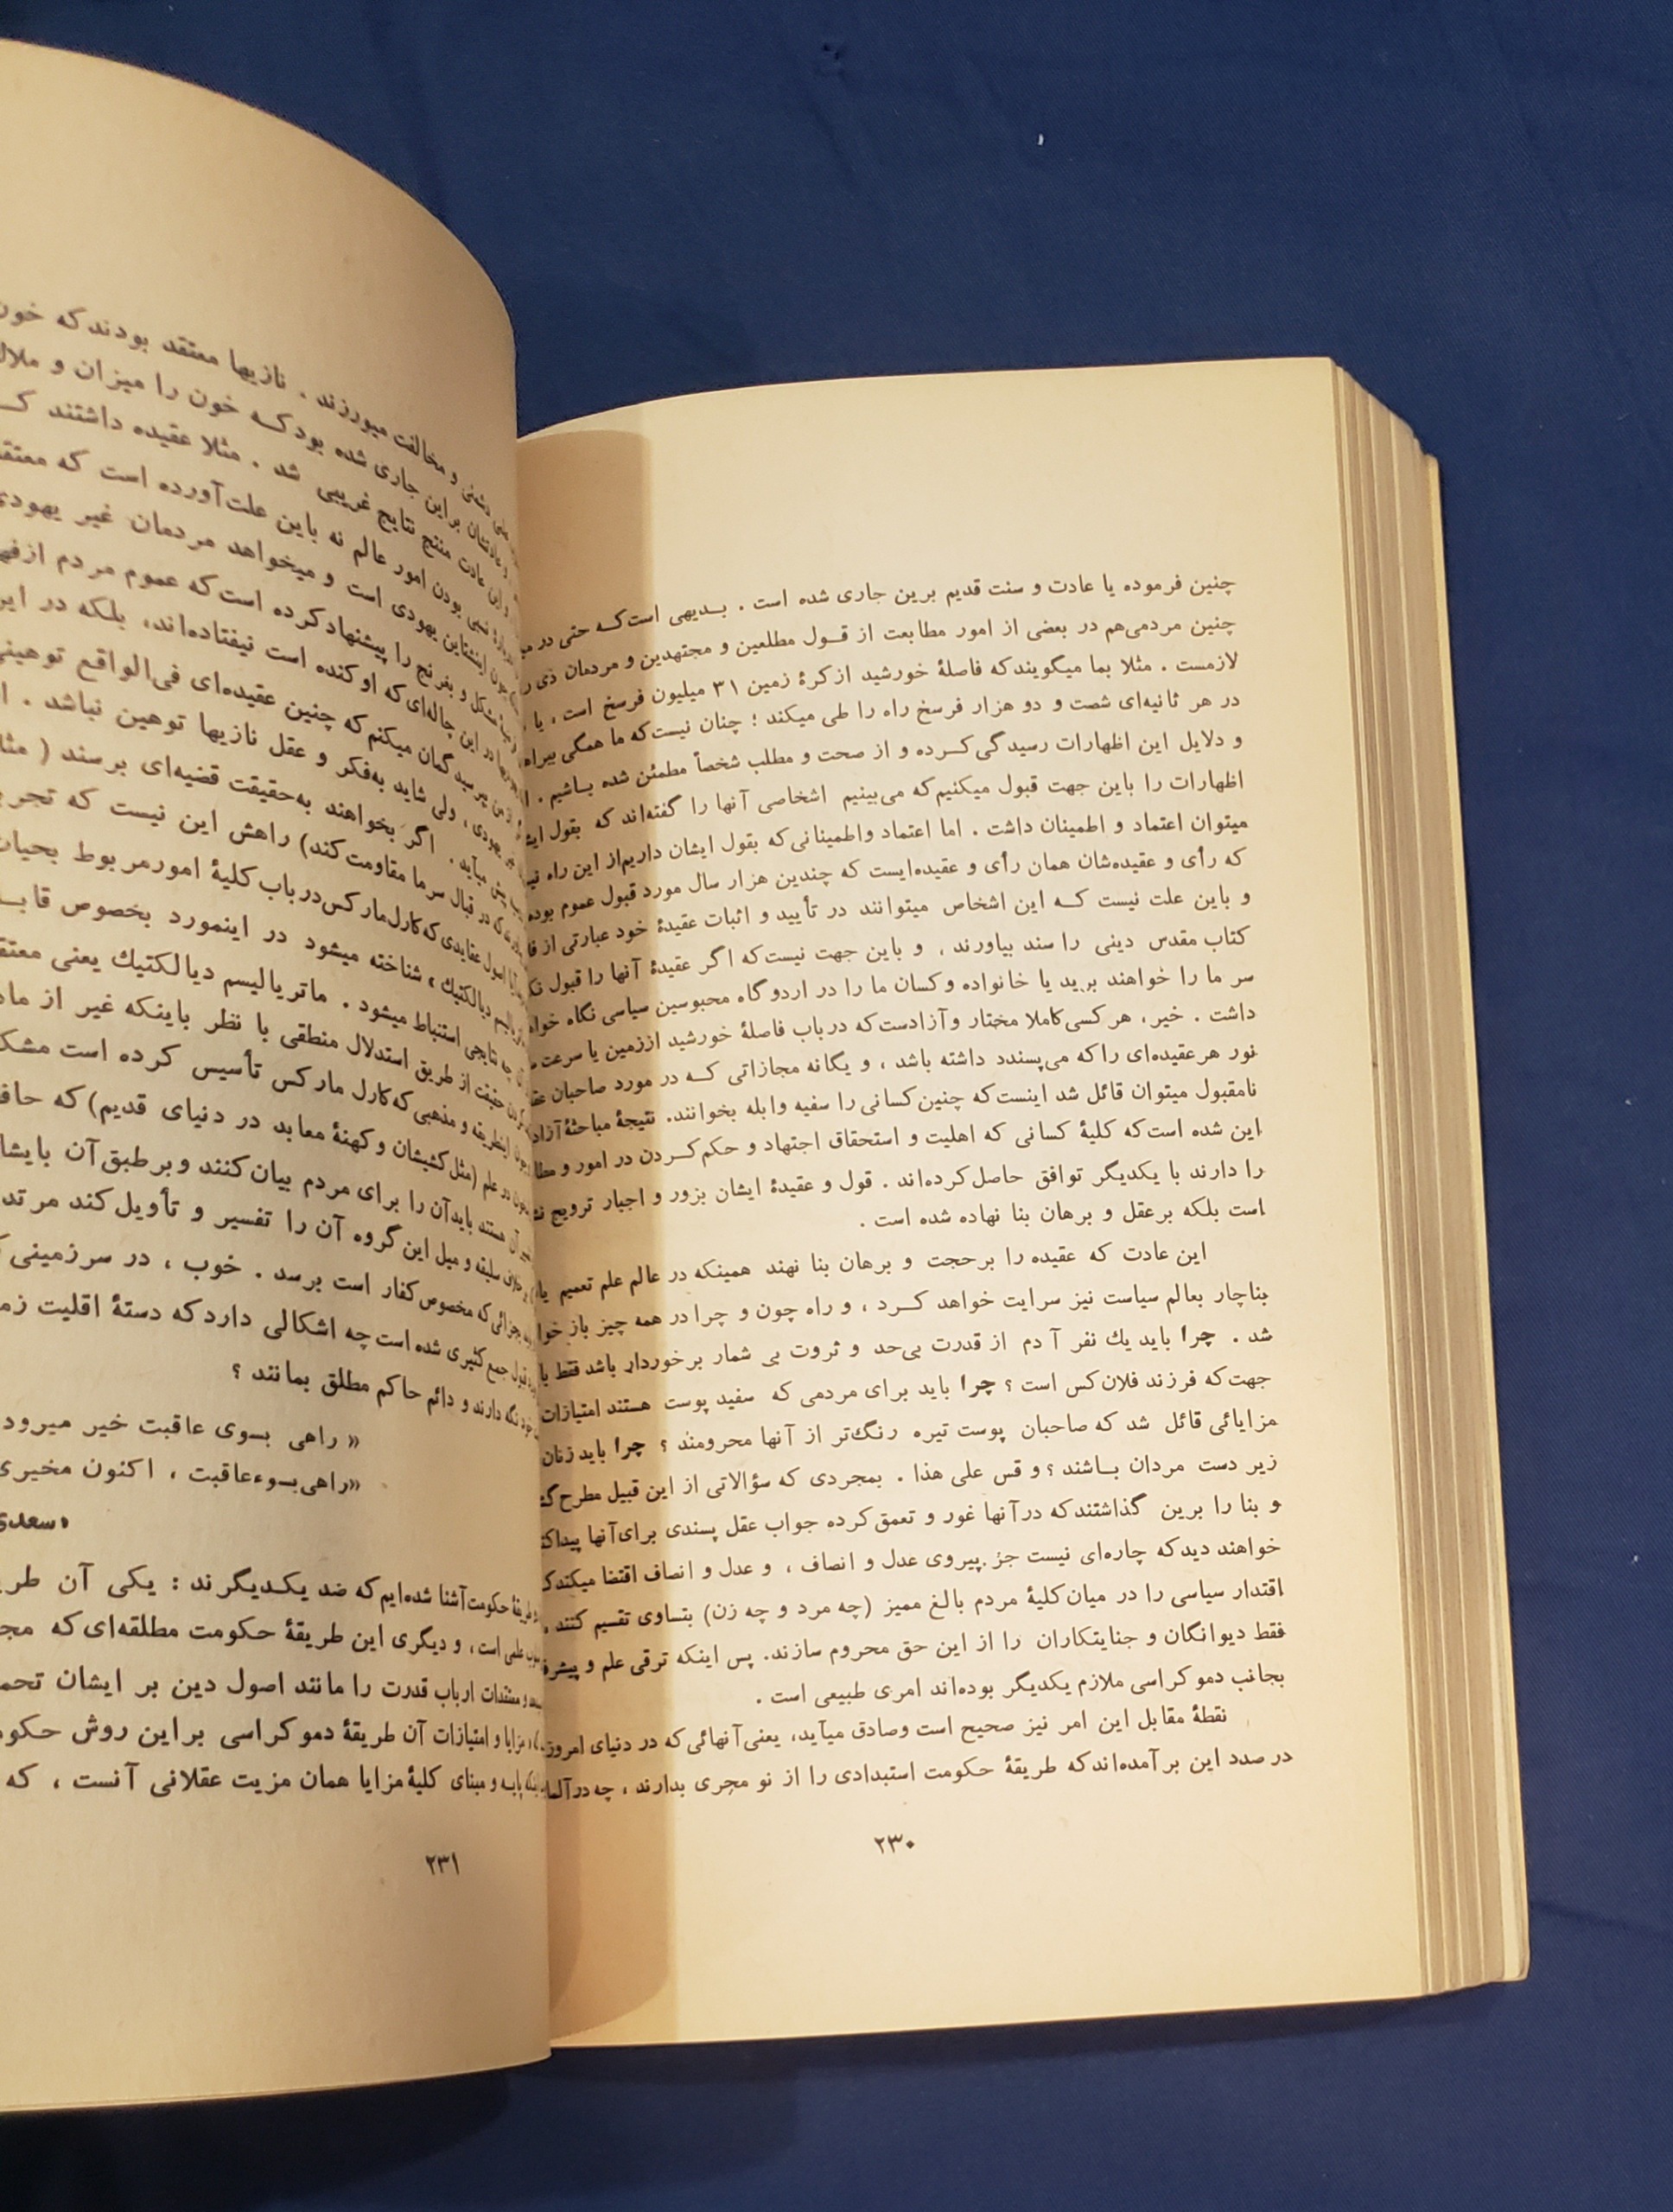 چنین فرموده یا عادت و سنت قدیم برین جاری شده است . بدیهی است که حتی در
چنین مردمی هم در بعضی از امور مطابعت از قول مطلعین و مجتهدین و مردمان ذی
لازمست . مثلا بما میگویند که فاصلهٔ خورشید از کرهٔ زمین ۳۱ میلیون فرسخ است ، یا
در هر ثانیه‌ای شصت و دو هزار فرسخ راه را طی میکند ؛ چنان نیست که ما همگی
و دلایل این اظهارات رسیدگی کرده و از صحت و مطلب شخصاً مطمئن شده باشیم .
اظهارات را باین جهت قبول میکنیم که می‌بینیم اشخاصی آنها را گفته‌اند که بقول
میتوان اعتماد و اطمینان داشت . اما اعتماد واطمینانی که بقول ایشان داریم از این راه
که رأی و عقیده‌شان همان رأی و عقیده‌ایست که چندین هزار سال مورد قبول عموم بوده
و باین علت نیست که این اشخاص میتوانند در تأیید و اثبات عقیدهٔ خود عبارتی از
کتاب مقدس دینی را سند بیاورند ، و باین جهت نیست که اگر عقیدهٔ آنها را قبول
سر ما را خواهند برید یا خانواده و کسان ما را در اردوگاه محبوسین سیاسی نگاه
داشت . خیر ، هر کسی کاملا مختار و آزادست که درباب فاصلهٔ خورشید اززمین یا سرعت
نور هر عقیده‌ای را که می‌پسندد داشته باشد ، و یگانه مجازاتی که در مورد صاحبان
نامقبول میتوان قائل شد اینست که چنین کسانی را سفیه وابله بخوانند. نتیجهٔ مباحثهٔ آزاد
این شده است که کلیهٔ کسانی که اهلیت و استحقاق اجتهاد و حکم کردن در امور و
را دارند با یکدیگر توافق حاصل کرده‌اند . قول و عقیدهٔ ایشان بزور و اجبار ترویج
است بلکه برعقل و برهان بنا نهاده شده است .
این عادت که عقیده را برحجت و برهان بنا نهند همینکه در عالم علم تعمیم
بناچار بعالم سیاست نیز سرایت خواهد کرد ، و راه چون و چرا در همه چیز باز
شد . چرا باید یك نفر آدم از قدرت بی‌حد و ثروت بی شمار برخوردار باشد فقط
جهت که فرزند فلان کس است ؟ چرا باید برای مردمی که سفید پوست هستند امتیازات
مزایائی قائل شد که صاحبان پوست تیره رنگ‌تر از آنها محرومند ؟ چرا باید زنان
زیر دست مردان باشند ؟ و قس علی هذا . بمجردی که سؤالاتی از این قبیل مطرح
و بنا را برین گذاشتند که در آنها غور و تعمق کرده جواب عقل پسندی برای آنها
خواهند دید که چاره‌ای نیست جز پیروی عدل و انصاف ، و عدل و انصاف اقتضا میکند
اقتدار سیاسی را در میان کلیهٔ مردم بالغ ممیز (چه مرد و چه زن) بتساوی تقسیم کنند
فقط دیوانگان و جنایتکاران را از این حق محروم سازند. پس اینکه ترقی علم و
بجانب دموکراسی ملازم یکدیگر بوده‌اند امری طبیعی است .
نقطهٔ مقابل این امر نیز صحیح است وصادق میآید، یعنی آنهائی که در دنیای امروز
در صدد این برآمده‌اند که طریقهٔ حکومت استبدادی را از نو مجری بدارند ، چه در
۲۳۰
و مخالفت میورزند . نازیها معتقد بودند که خون
براین جاری شده بود که خون را میزان و
منتج نتایج غریبی شد . مثلا عقیده داشتند
بودن امور عالم نه باین علت آورده است که
اینشتاین یهودی است و میخواهد مردمان غیر
را پیشنهاد کرده است که عموم مردم
در این چاله‌ای که او کنده است نیفتاده‌اند، بلکه در
گمان میکنم که چنین عقیده‌ای فی‌الواقع
یهودی ، ولی شاید به فکر و عقل نازیها توهین نباشد .
میآید . اگر بخواهند به حقیقت قضیه‌ای برسند ( مثلا
در قبال سرما مقاومت کند) راهش این نیست که
اصول عقایدی که کارل مارکس درباب کلیهٔ امور مربوط
دیالکتیك » شناخته میشود در اینمورد بخصوص
چه نتایجی استنباط میشود . ماتریالیسم دیالکتیك یعنی
حقیقت از طریق استدلال منطقی با نظر باینکه غیر از
و مذهبی که کارل مارکس تأسیس کرده است
در علم (مثل کشیشان و کهنهٔ معابد در دنیای قدیم) که
هستند باید آن را برای مردم بیان کنند و برطبق آن
سلیقه و میل این گروه آن را تفسیر و تأویل کند
جزائی که مخصوص کفار است برسد . خوب ، در سرزمینی
قول جمع کثیری شده است چه اشکالی دارد که دستهٔ اقلیت
نگه دارند و دائم حاکم مطلق بمانند ؟
« راهی بسوی عاقبت خیر میرود
«راهی بسوء عاقبت ، اکنون مخیری
«سعدی
حکومت آشنا شده‌ایم که ضد یکدیگرند : یکی آن
علمی است ، و دیگری این طریقهٔ حکومت مطلقه‌ای که
و معتقدات ارباب قدرت را مانند اصول دین بر ایشان
مزایا و امتیازات آن طریقهٔ دموکراسی براین روش
پایه و مبنای کلیهٔ مزایا همان مزیت عقلانی آنست ، که
۲۳۱